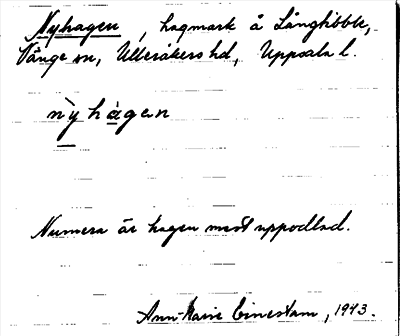 Nyhagen, hagmark å Långtibble,
Vänge sn, Ulleråkers hd, Uppsala l.
nỳ hàgen
Numera är hagen mest uppodlad.
Ann-Marie Einestam, 1943.